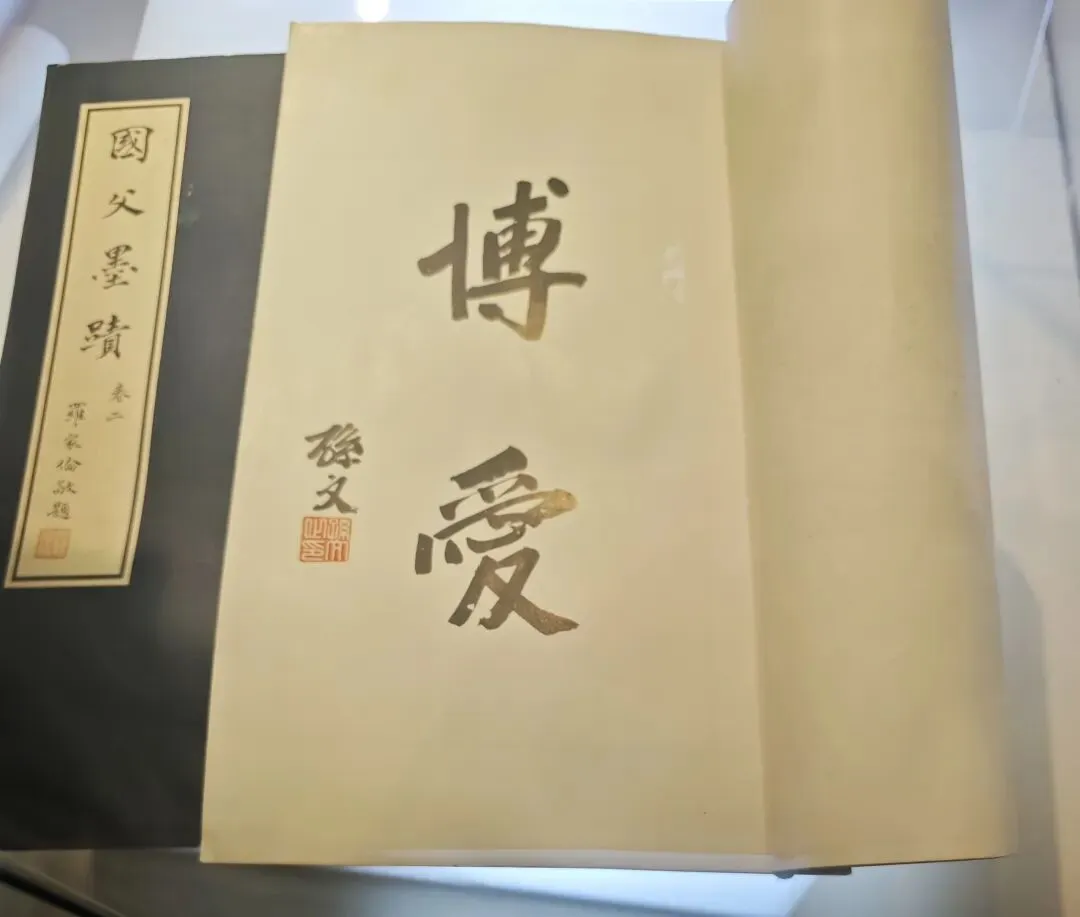 國父墨蹟
卷二
羅家倫敬題
博愛
孫文
孫文之印